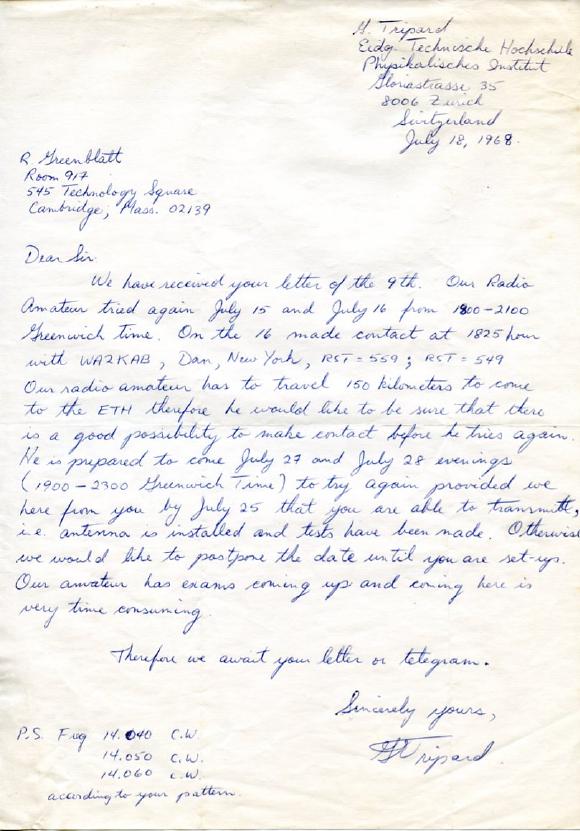 G. Tripard
Eidg. Technische Hochschule
Physikalisches Institut
Gloriastrasse 35
8006 Zurich
Switzerland
July 18, 1968.
R. Greenblatt
Room 917
545 Technology Square
Cambridge, Mass. 02139
Dear Sir
We have received your letter of the 9th. Our Radio
Amateur tried again July 15 and July 16 from 1800-2100
Greenwich time. On the 16 made contact at 1825 hour
with WA2KAB, Dan, New York, RST = 559; RST = 549
Our radio amateur has to travel 150 kilometers to come
to the ETH therefore he would like to be sure that there
is a good possibility to make contact before he tries again.
He is prepared to come July 27 and July 28 evenings
(1900-2300 Greenwich Time) to try again provided we
here from you by July 25 that you are able to transmitt,
i.e. antenna is installed and tests have been made. Otherwise
we would like to postpone the date until you are set-up.
Our amateur has exams coming up and coming here is
very time consuming.
Therefore we await your letter or telegram.
Sincerely yours,
G Tripard
P.S. Freq 14.040 C.W.
14.050 C.W.
14.060 C.W.
according to your pattern.